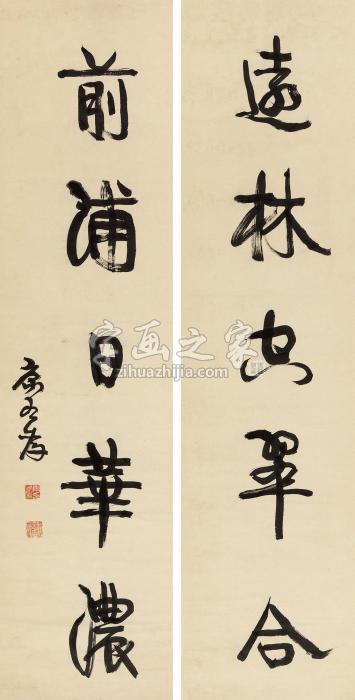 遠林空翠合
前浦日華濃
康有為
字画之家
zihuazhijia.com